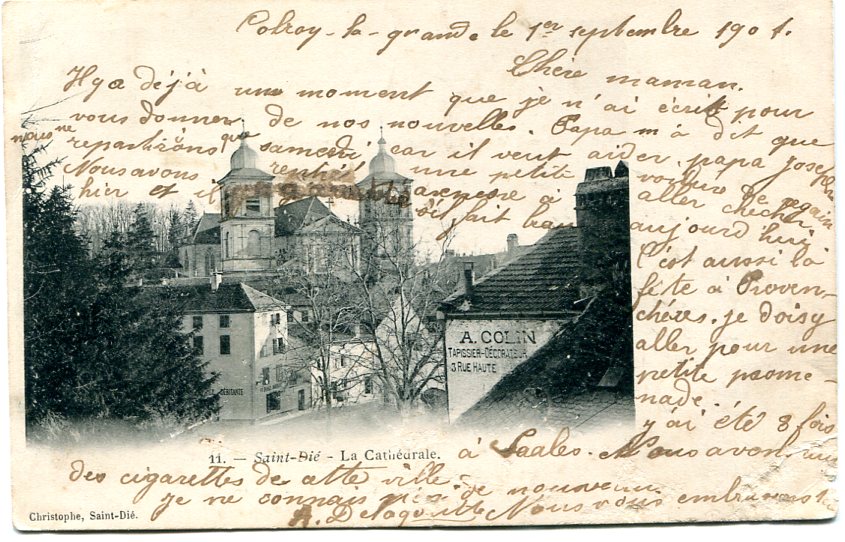 Colroy-la-grande le 1er septembre 1901.
Chère maman.
Il y a déjà un moment que je n'ai écrit pour
vous donner de nos nouvelles. Papa m'a dit que
nous ne repartirons que samedi, car il veut aider papa Joseph
Nous avons rentré une petite voiture de regain
hier et aller chercher
s'il fait beau aujourd'hui
C'est aussi la
fête à Proven-
chères. je dois y
aller pour une
petite prome-
nade.
j'ai été 8 fois
à Saales. Nous avons
des cigarettes de cette ville.
je ne connais de nouveau
Nous vous embrassons
A. COLIN
TAPISSIER-DÉCORATEUR
3 RUE HAUTE
DÉBITANTE
11. — Saint-Dié - La Cathédrale.
Christophe, Saint-Dié.